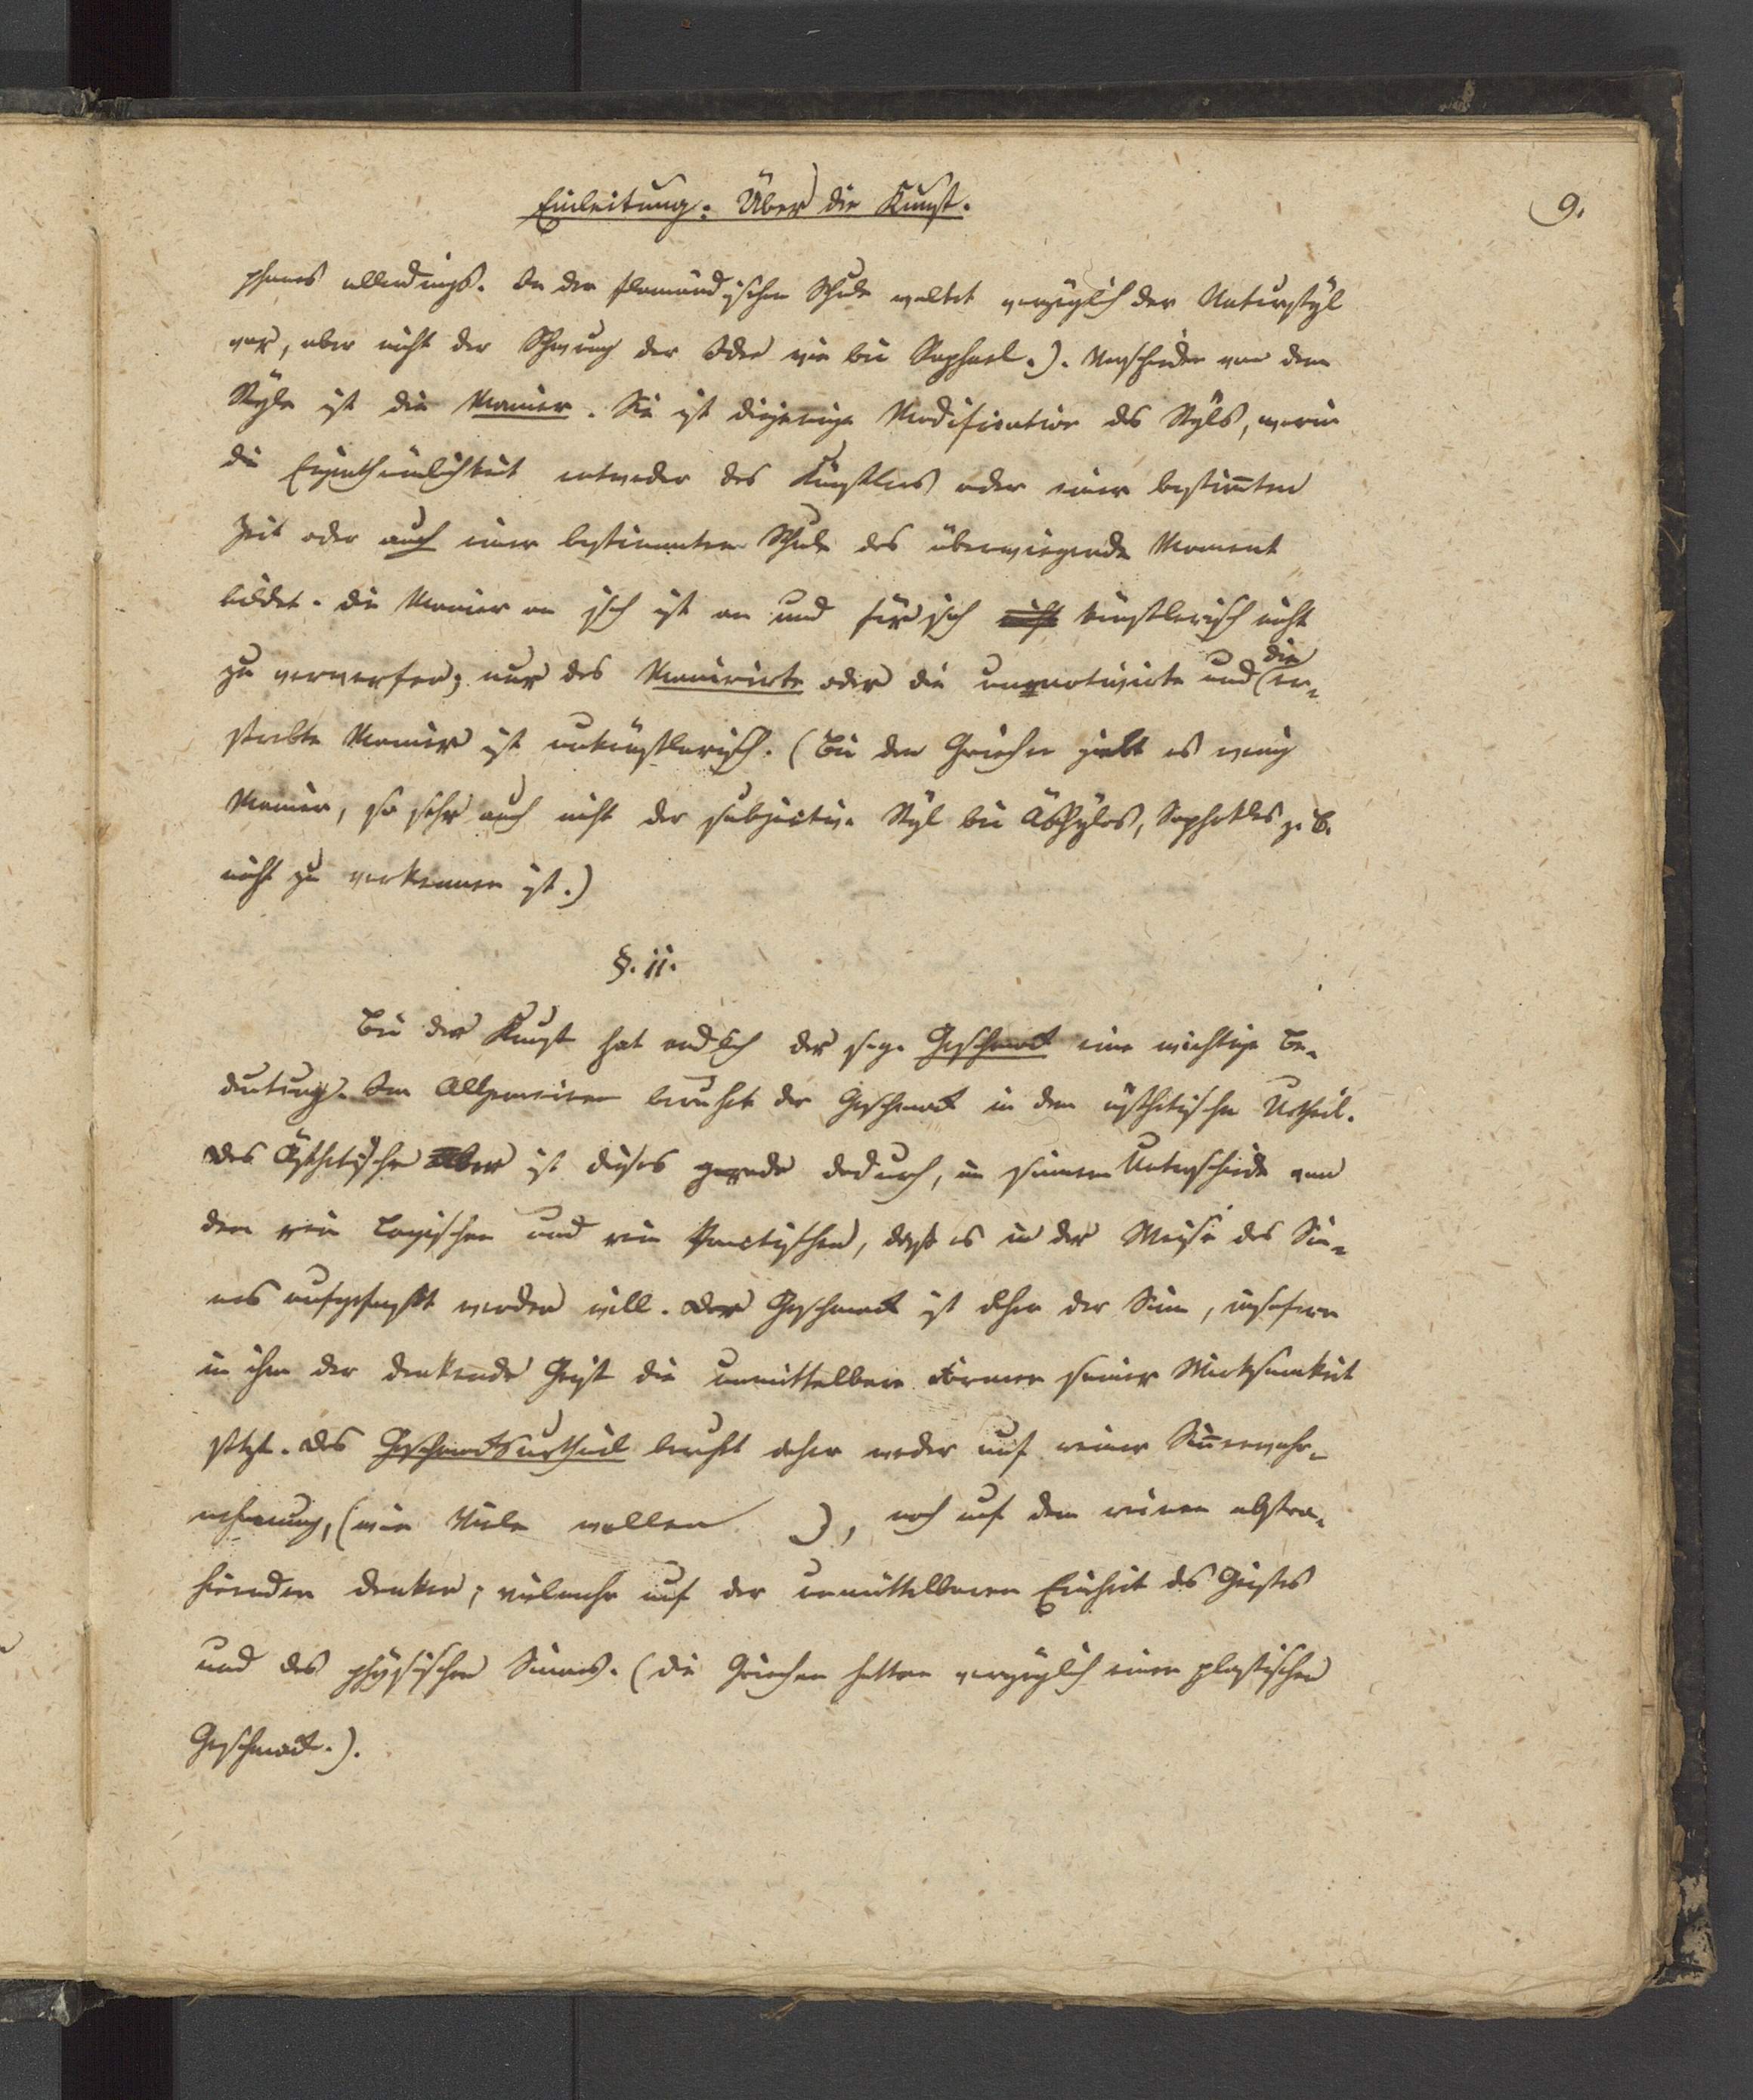 Einleitung: Über die Kunst.
9.
phanes allerdings. In der flamändischen Schule waltet vorzüglich der Naturstyl
vor, aber nicht der Schwung der Idee wie bei Raphael.). Verschieden von dem
Style ist die Manier. Sie ist diejenige Modification des Styls, worin
die Eigenthümlichkeit entweder des Künstlers oder einer bestim̅ten
Zeit oder auch einer bestimmten Schule das überwiegende Moment
bildet. Die Manier an sich ist an und für sich nicht künstlerisch nicht
zu verwerfen; nur das Manirirte oder die unmotivirte und die er-
strebte Manier ist unkünstlerisch. (Bei den Griechen giebt es wenig
Manier, so sehr auch nicht der subjective Styl bei Äschylos, Sophokles z. B.
nicht zu verkennen ist.)
§. 11.
Bei der Kunst hat endlich der sog. Geschmack eine wichtige Be-
deutung. Im Allgemeinen beruht der Geschmack in dem ästhetischen Urtheil.
Das Ästhetische aber ist dieses gerade dadurch, in seinem Unterschiede von
dem rein Logischen und rein Practischen, daß es in der Weise des Sin-
nes aufgefaßt werden will. Der Geschmack ist daher der Sinn, insofern
in ihm der denkende Geist die unmittelbare Form seiner Wirksamkeit
setzt. Das Geschmacksurtheil beruht daher weder auf reiner Sin̅enwahr-
nehmung, (wie Viele wollen ), noch auf dem reinen abstra-
hirenden Denken; vielmehr auf der unmittelbaren Einheit des Geistes
und des physischen Sinnes. (Die Griechen hatten vorzüglich einen plastischen
Geschmack.).